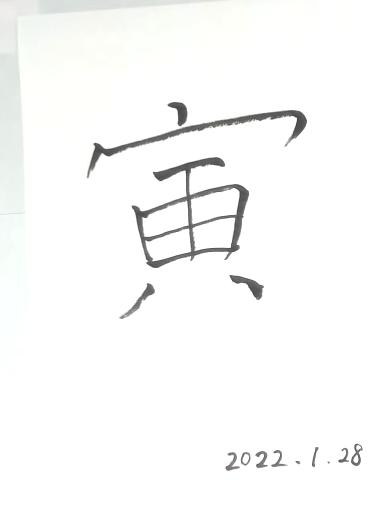 寅
2022.1.28